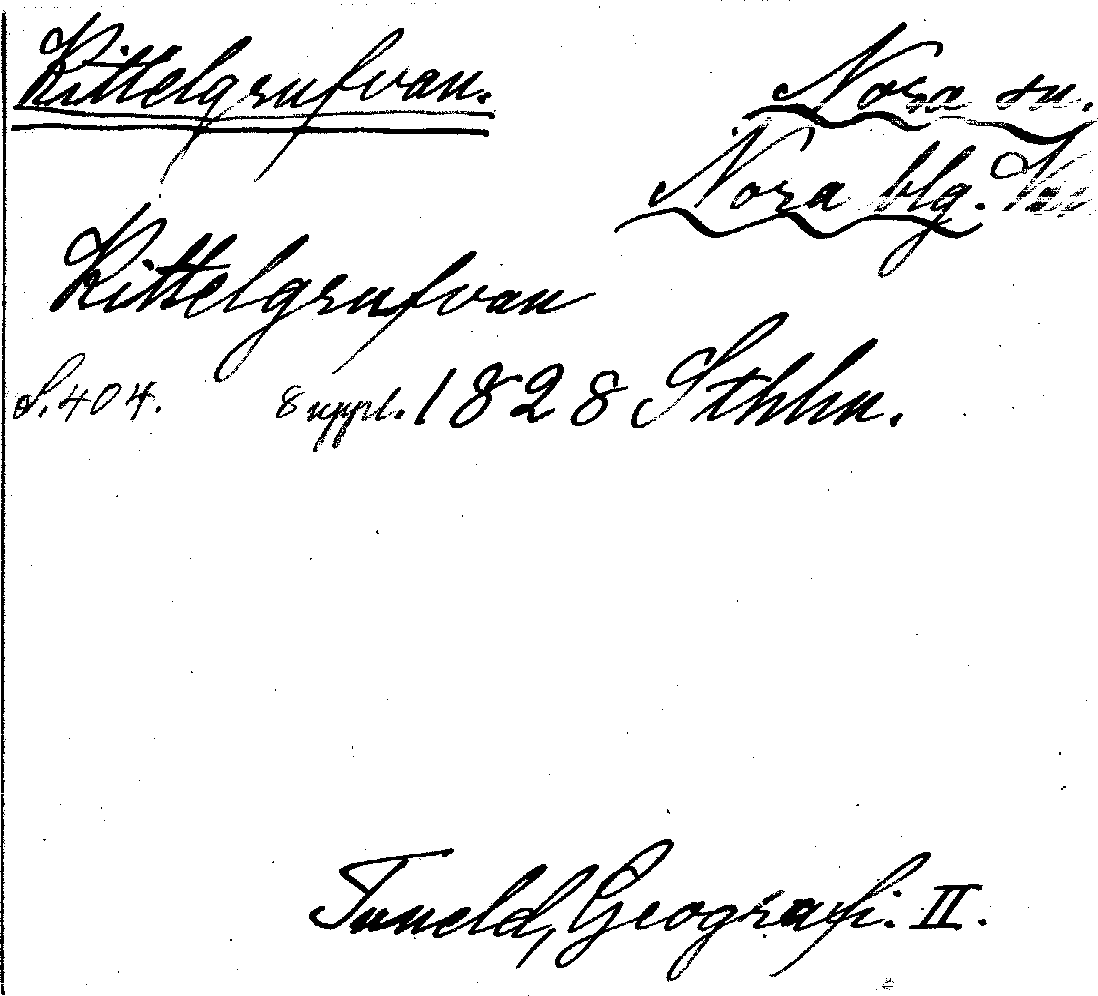 Kittelgrufvan. Nora sn.
Nora blg.
Kittelgrufvan
S. 404. 8 uppl. 1828 Sthlm.
Tuneld, Geografi. II.